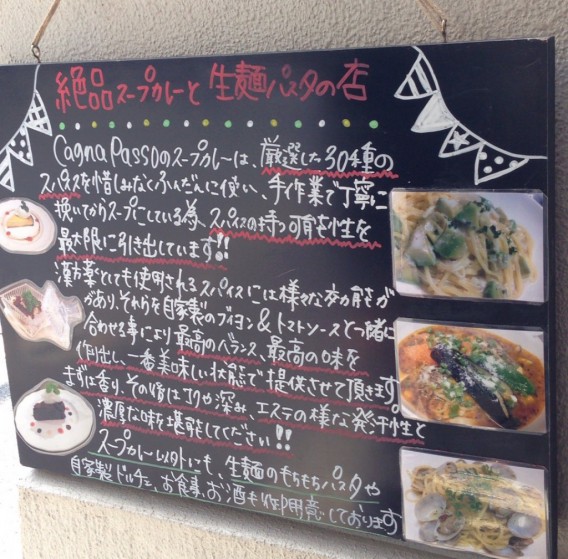 絶品スープカレーと生麺パスタの店
Cagna Passoのスープカレーは、厳選した30種の
スパイスを惜しみなくふんだんに使い、手作業で丁寧に
挽いてからスープにしている為、スパイスの持つ可能性を
最大限に引き出しています!!
漢方薬としても使用されるスパイスには様々な効能が
があり、それらを自家製のブイヨン&トマトソースと一緒に
合わせる事により最高のバランス、最高の味を
作り出し、一番美味しい状態で提供させて頂きます
まずは香り、その後はコクや深み、エステの様な発汗性と
濃厚な味を堪能してください!!
スープカレー以外にも、生麺のもちもちパスタや
自家製ドルチェ、お食事、お酒も御用意しております